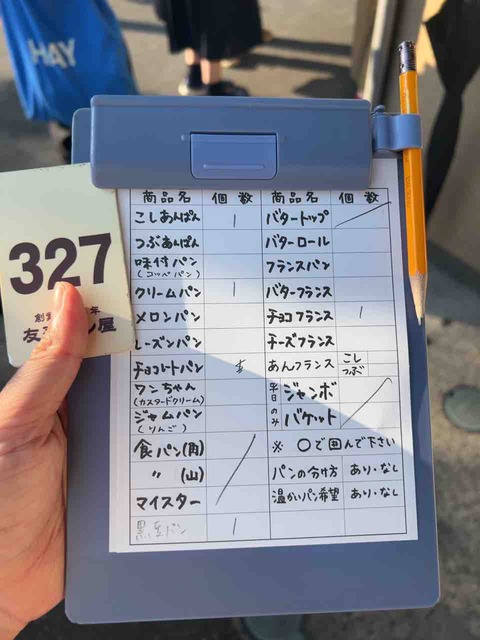 HAY
327
創業 年
友 ン屋
商品名 個数 商品名 個数
こしあんぱん 1 バタートップ
つぶあんぱん バターロール
味付パン フランスパン
(コッペパン)
クリームパン 1 バターフランス
メロンパン チョコフランス 1
レーズンパン チーズフランス
チョコレートパン あんフランス こし
つぶ
ワンちゃん 平日 ジャンボ
(カスタードクリーム)
ジャムパン のみ バケット
(りんご)
食パン(角) ※ ○で囲んで下さい
〃 (山) パンの分け方 あり・なし
マイスター 温かいパン希望 あり・なし
黒豆パン 1